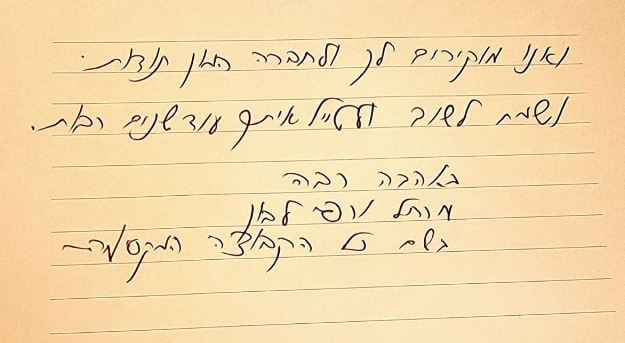 ואנו מוקירים לך ולחברה המון תודות.
ונשמח לשוב ולטייל איתך עוד שנים רבות.
באהבה רבה
מרחל ורפי לבן
בשם כל הקבוצה המקסימה